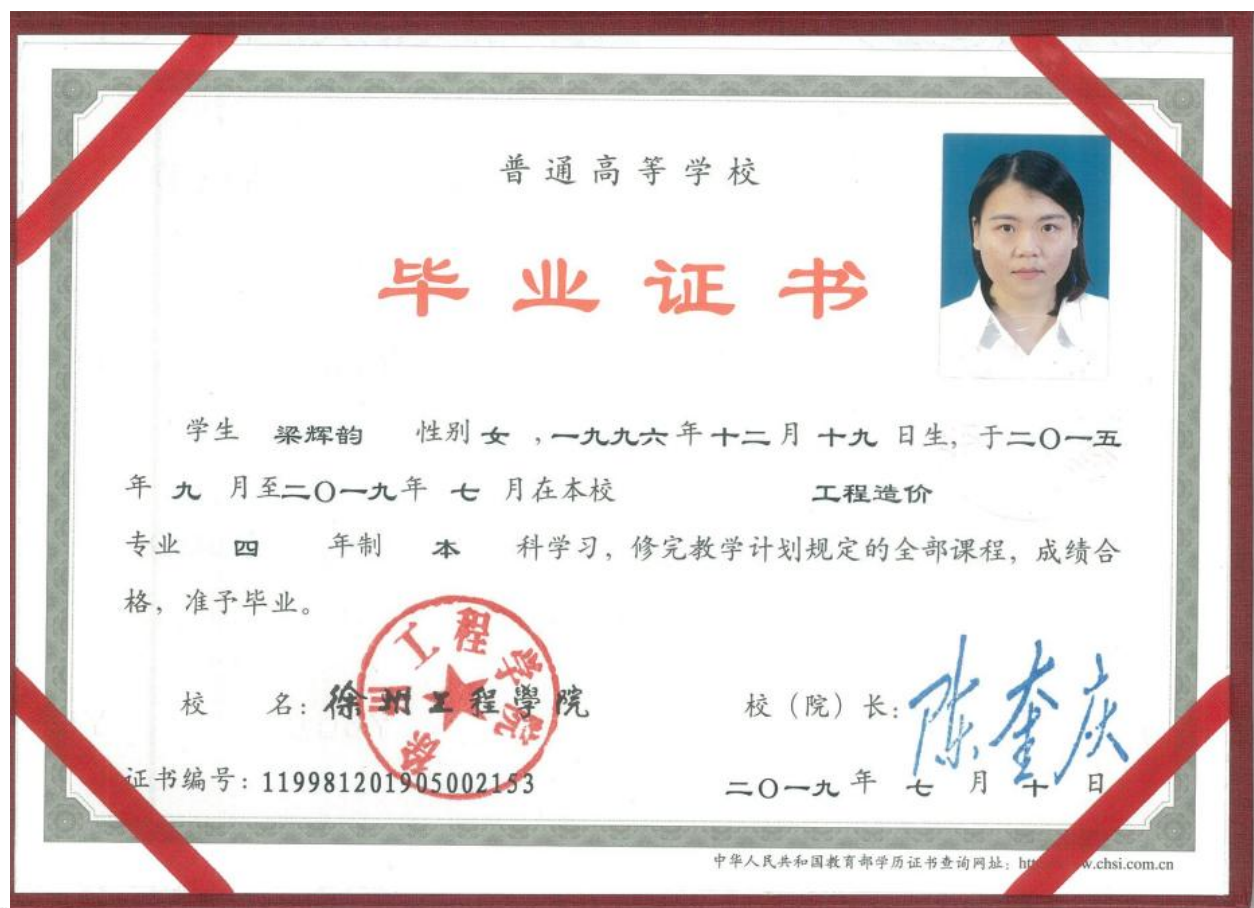 普通高等学校
毕业证书
学生 梁辉韵 性别 女 ,一九九六年十二月十九日生, 于二〇一五
年 九 月至二〇一九年 七 月在本校 工程造价
专业 四 年制 本 科学习, 修完教学计划规定的全部课程, 成绩合
格, 准予毕业。
徐州工程学院
校 名: 徐州工程學院
校（院）长: 陈奎庆
证书编号: 119981201905002153
二〇一九年 七 月 十 日
中华人民共和国教育部学历证书查询网址: chsi.com.cn